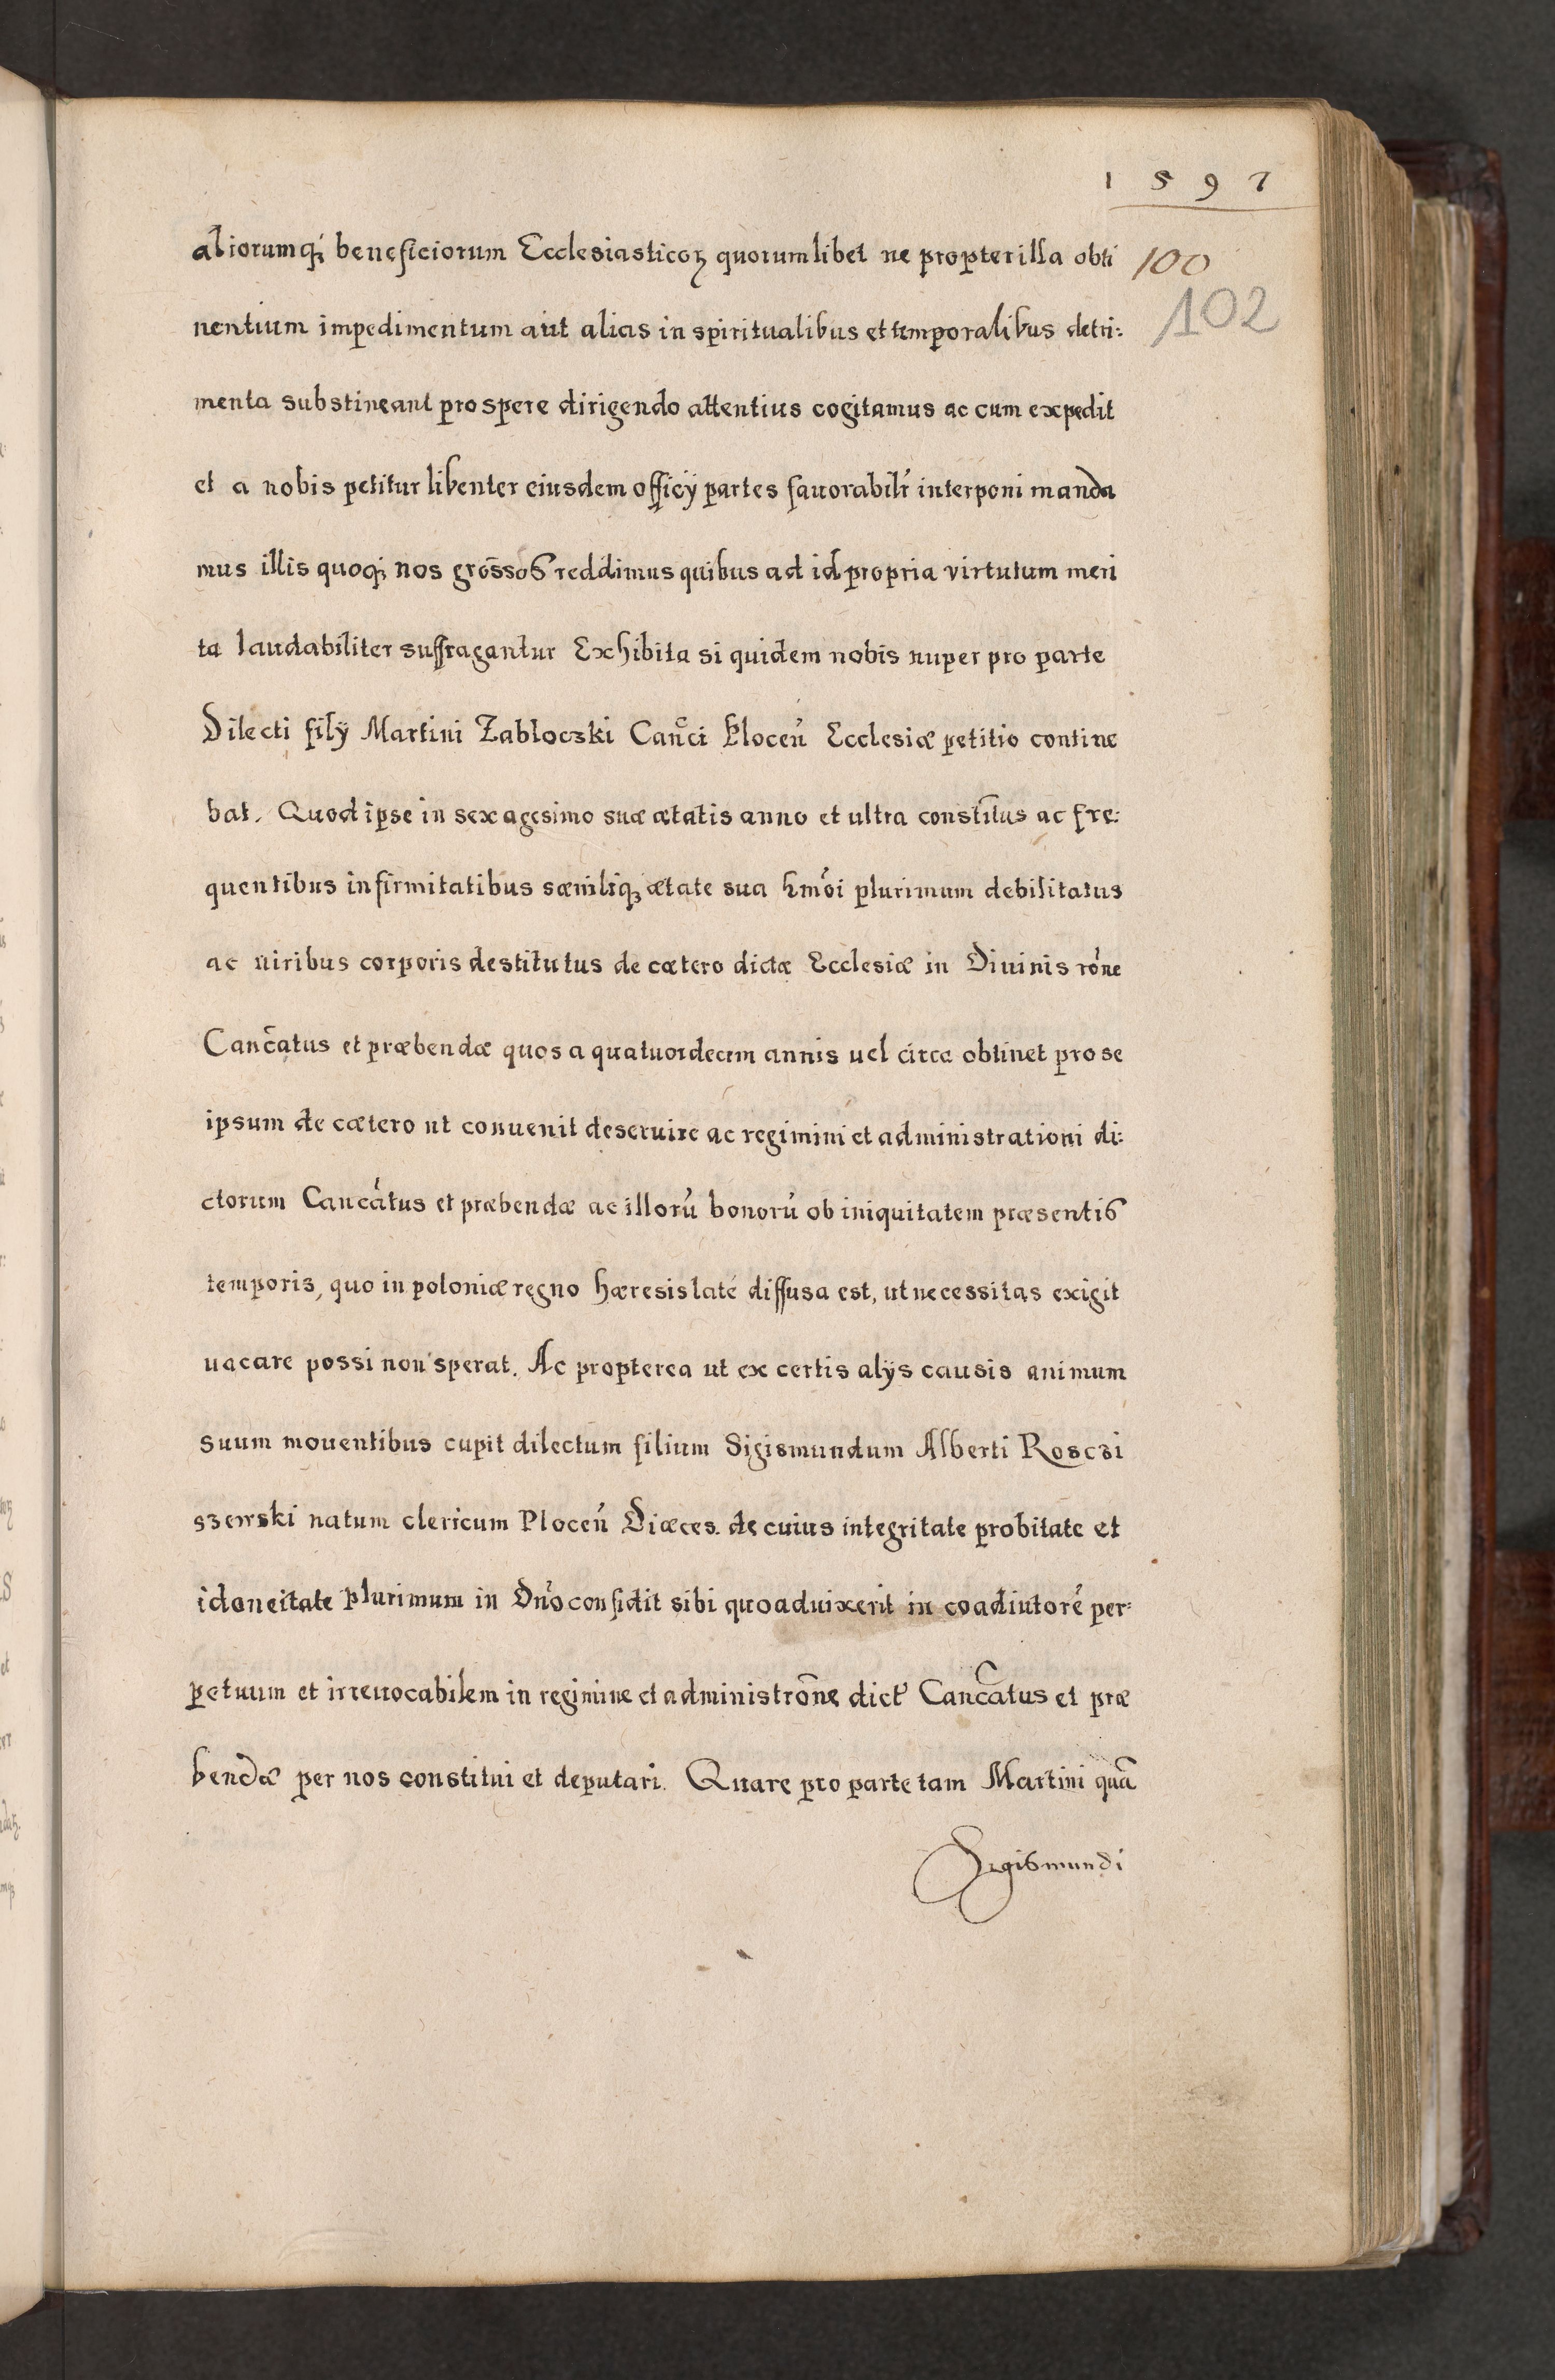 1597
100
102
aliorumq; beneficiorum Ecclesiasticoꝝ quorumlibet ne propter illa obti
nentium impedimentum aut alias in spiritualibus et temporalibus detri:
menta substineant prospere dirigendo attentius cogitamus ac cum expedit
et a nobis petitur libenter eiusdem officÿ partes fauorabilr̃ interponi manda
mus illis quoq; nos grõssos reddimus quibus ad id propria virtutum meri
ta laudabiliter suffragantur Exhibita si quidem nobis nuper pro parte
Dilecti filÿ Martini Zabloczki Canc̃i Plocen̄ Ecclesiæ petitio contine
bat. Quod ipse in sexagesimo suæ ætatis anno et ultra constĩtus ac fre:
quentibus infirmitatibus sæniliq; ætate sua hmõi plurimum debilitatus
ac uiribus corporis destitutus de cætero dictæ Ecclesiæ in Diuinis rõne
Canc̃atus et præbendæ quos a quatuordecim annis uel circa obtinet pro se
ipsum de cætero ut conuenit deseruire ac regimini et administrationi di:
ctorum Canc̃atus et præbendæ ac illorū bonorū ob iniquitatem præsentis
temporis, quo in poloniæ regno hæresis laté diffusa est, ut necessitas exigit
uacare possi non sperat. Ac propterea ut ex certis alÿs causis animum
suum mouentibus cupit dilectum filium Sigismundum Alberti Rosczi
szewski natum clericum Plocen̄ Diæces. de cuius integritate probitate et
idoneitate plurimum in Dn̄o confidit sibi quoad uixerit in coadiutorē per:
petuum et irreuocabilem in regimine et administrõne dict' Canc̃atus et præ
bendæ per nos constitui et deputari. Quare pro parte tam Martini quā
Sigismundi